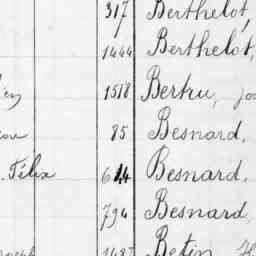 317 Berthelot,
1444 Berthelot,
1518 Berku,
85 Besnard,
Félix 614 Besnard,
794 Besnard,
Betin